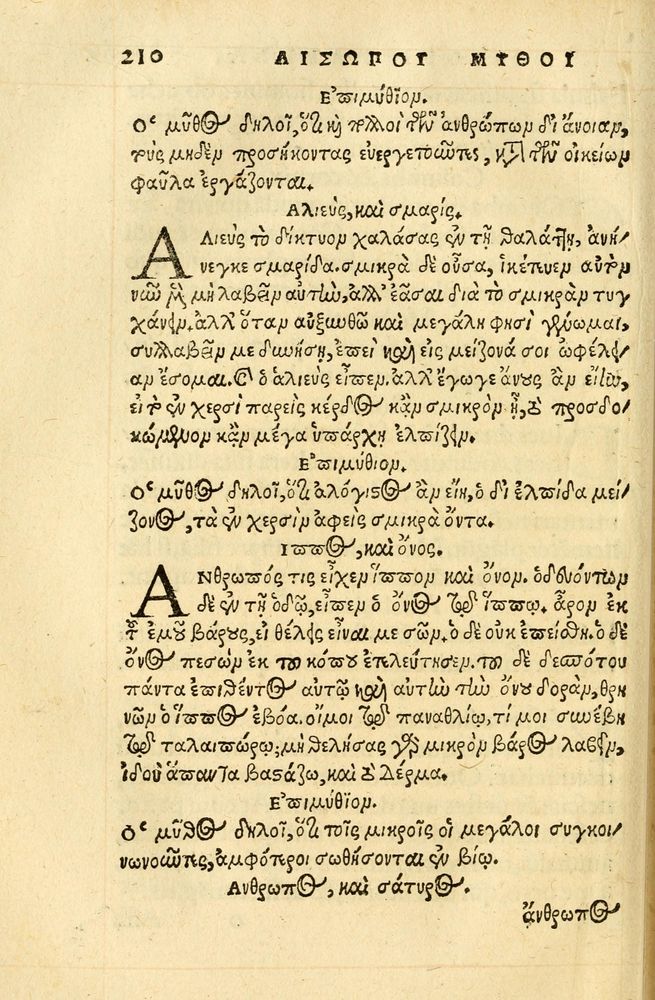 210 ΑΙΣΩΠΟΥ ΜΥΘΟΥ
Ἐπιμύθιον.
Ὁ μῦθος δηλοῖ, ὅτι καὶ πολλοὶ τῶν ἀνθρώπων δι' ἄνοιαν,
τοὺς μηδὲν προσήκοντας εὐεργετοῦντες, κατὰ τῶν οἰκείων
φαῦλα ἐργάζονται.
Ἁλιεύς, καὶ σμαρίς.
ΑΛιεὺς τὸ δίκτυον χαλάσας ἐν τῇ θαλάττῃ, ἀνή/
νεγκε σμαρίδα. σμικρὰ δὲ οὖσα, ἱκέτευεν αὐτὸν
νῦν μὲν μὴ λαβεῖν αὐτὴν, ἀλλ' ἐᾶσαι διὰ τὸ σμικρὰν τυγ
χάνειν. ἀλλ' ὅταν αὐξηνθῶ καὶ μεγάλη φησὶ γένωμαι,
συλλαβεῖν με δυνήσῃ, ἐπεὶ καὶ εἰς μείζονά σοι ὠφέλει/
αν ἔσομαι. Καὶ ὁ ἁλιεὺς εἶπεν. ἀλλ' ἔγωγε ἄνους ἂν εἴην,
εἰ τὸ ἐν χερσὶ παρεὶς κέρδος κἂν σμικρὸν ᾖ, τὸ προσδο/
κώμενον κἂν μέγα ὑπάρχῃ ἐλπίζειν.
Ἐπιμύθιον.
Ὁ μῦθος δηλοῖ, ὅτι ἀλόγιστος ἂν εἴη, ὁ δι' ἐλπίδα μεί/
ζονος, τὰ ἐν χερσὶν ἀφεὶς σμικρὰ ὄντα.
Ἵππος, καὶ ὄνος.
ΑΝθρωπός τις εἶχεν ἵππον καὶ ὄνον. ὁδευόντων
δὲ ἐν τῇ ὁδῷ, εἶπεν ὁ ὄνος τῷ ἵππῳ. ἆρον ἐκ
τοῦ ἐμοῦ βάρους, εἰ θέλεις εἶναί με σῶν. ὁ δὲ οὐκ ἐπείσθη. ὁ δὲ
ὄνος πεσὼν ἐκ τοῦ κόπου ἐτελεύτησεν. τοῦ δὲ δεσπότου
πάντα ἐπιθέντος αὐτῷ καὶ αὐτὴν τὴν ὄνου δορὰν, θρη
νῶν ὁ ἵππος ἐβόα. οἴμοι τῷ παναθλίῳ, τί μοι συνέβη
τῷ ταλαιπώρῳ; μὴ θελήσας γὰρ μικρὸν βάρος λαβεῖν,
ἰδοὺ ἅπαντα βαστάζω, καὶ τὸ δέρμα.
Ἐπιμύθϊον.
Ὁ μῦθος δηλοῖ, ὅτι τοῖς μικροῖς οἱ μεγάλοι συγκοι/
νωνοῦντες, ἀμφότεροι σωθήσονται ἐν βίῳ.
Ἄνθρωπος, καὶ σάτυρος.
ἄνθρωπος